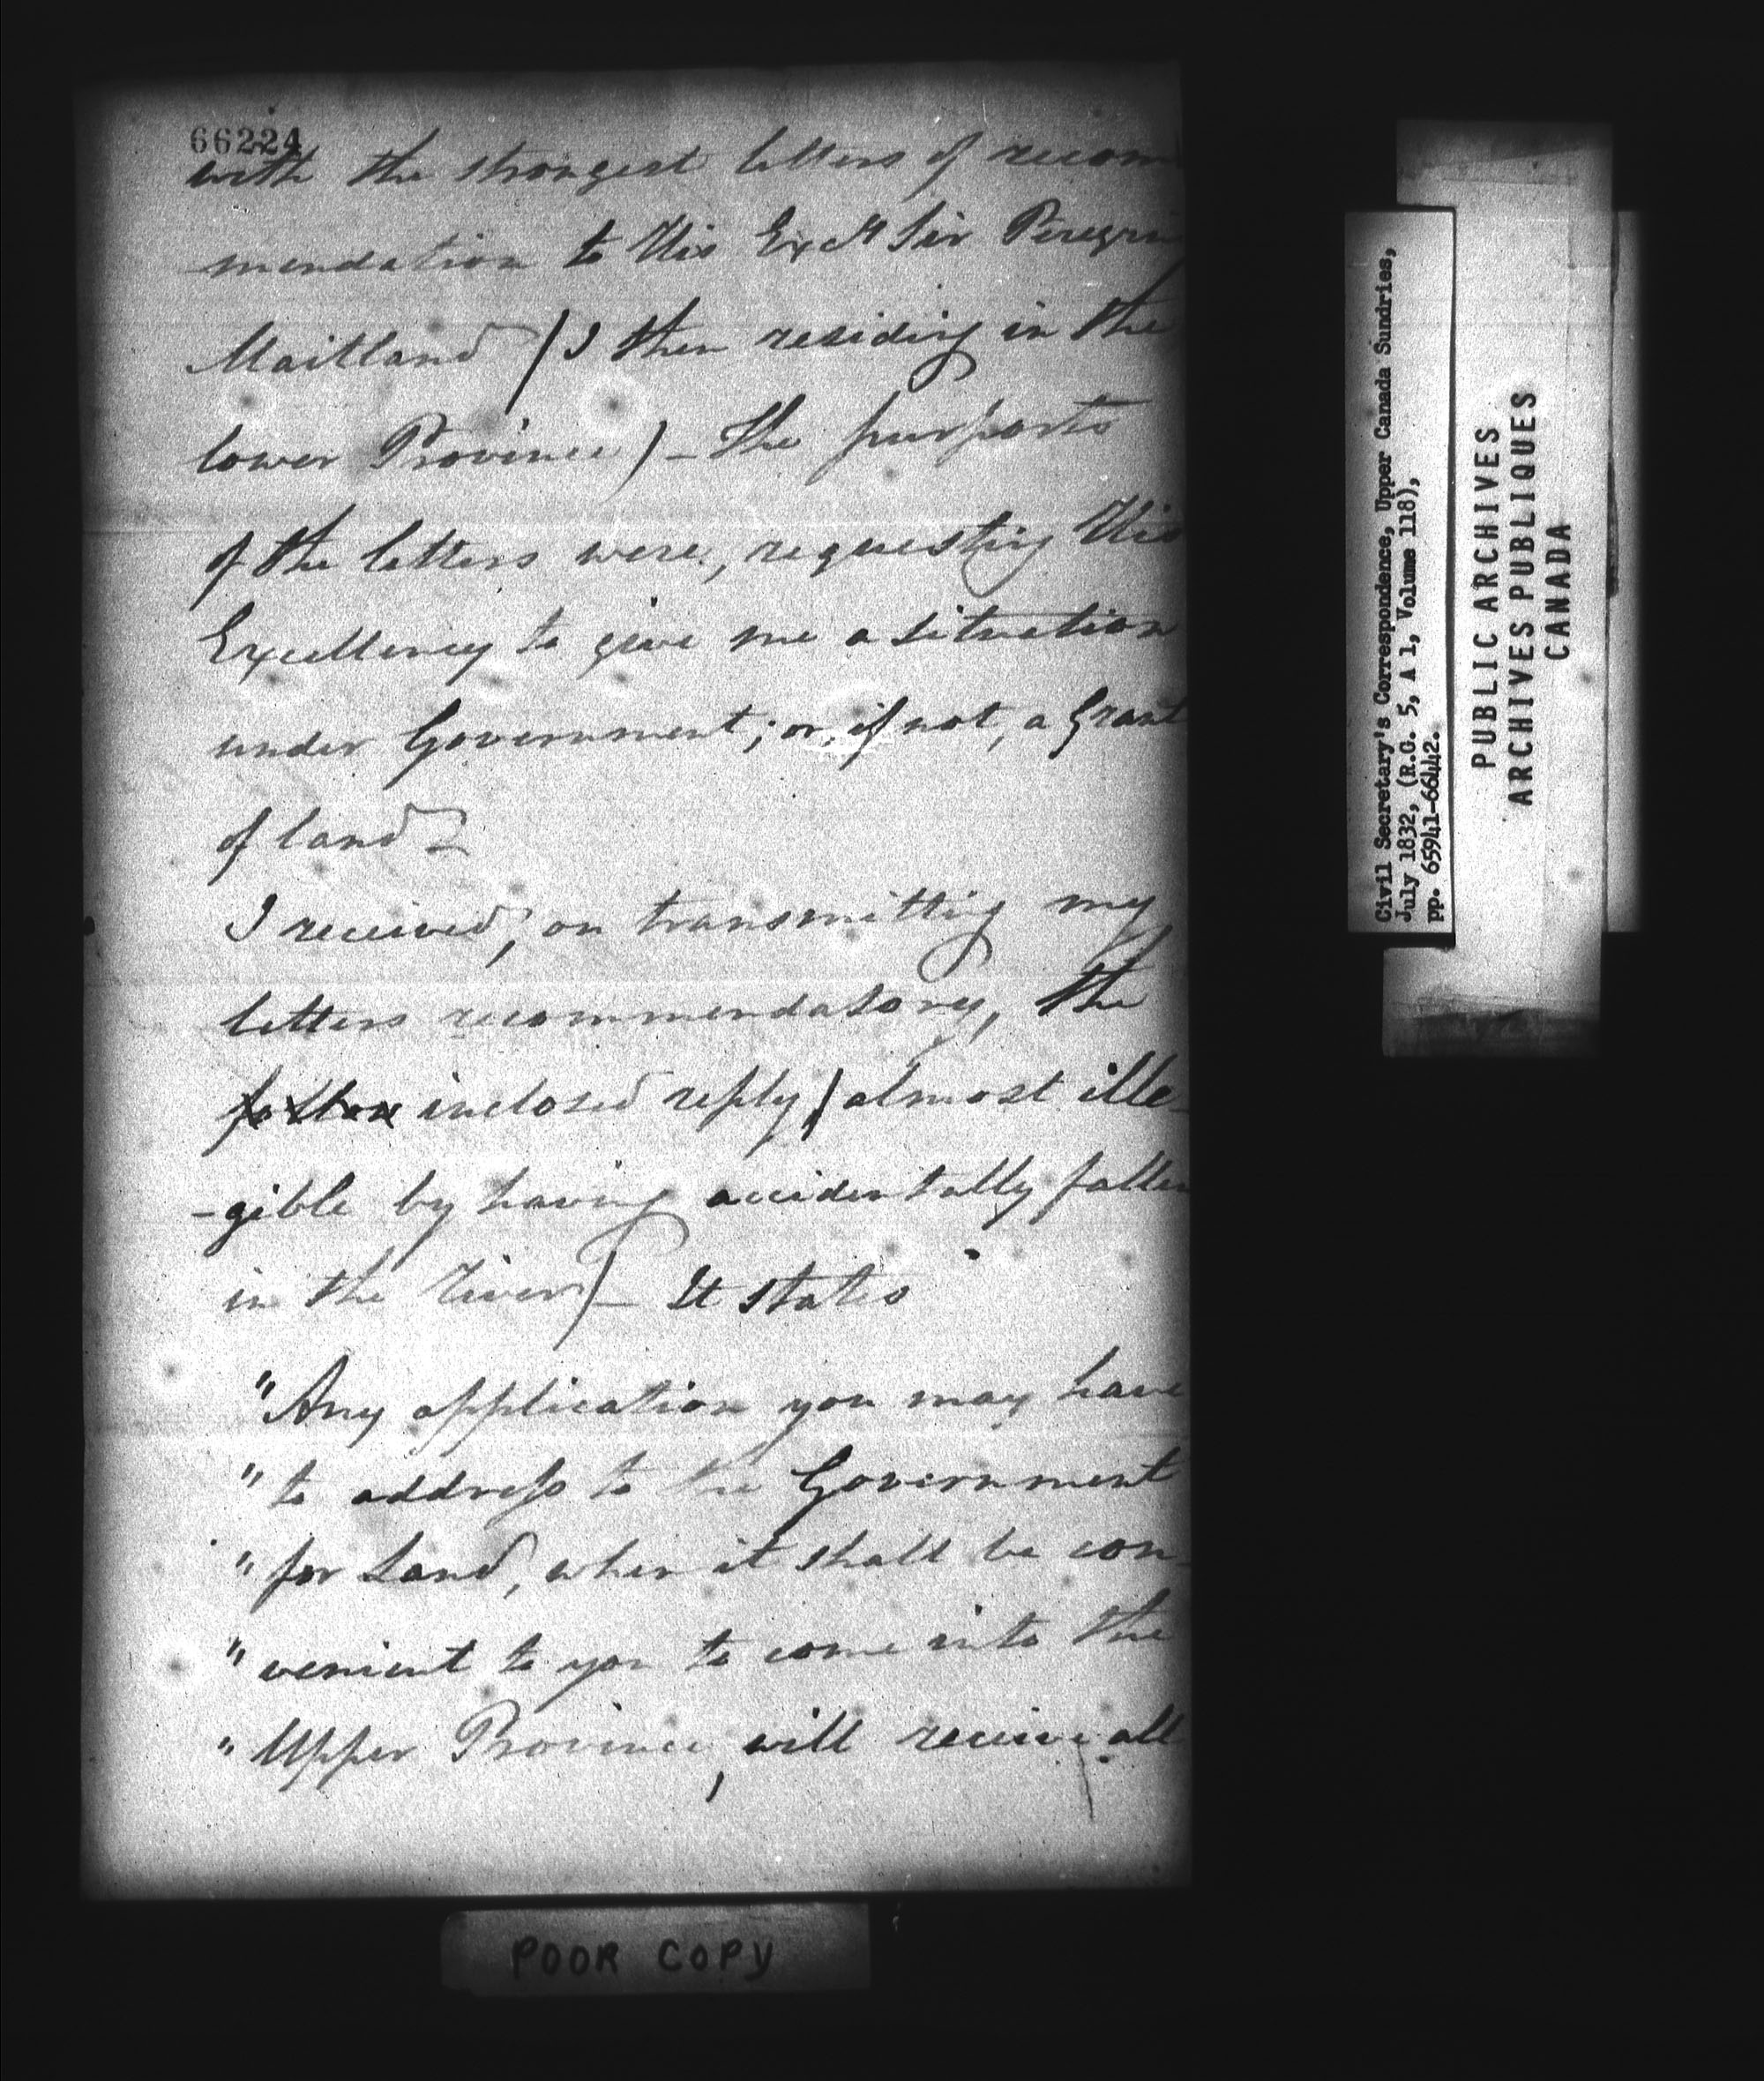 66224
with the strongest letters of recom
mendation to His Excy Sir Peregri
Maitland (I then residing in the
lower Province) – The purports
of the letters were, requesting His
Excellency to give me a situation
under Government; or, if not, a Grant
of land –
I received, on transmitting my
letters recommendatory, the
inclosed reply (almost ille-
-gible by having accidentally fallen
in the River) – It states
"Any application you may have
" to address to the Government
" for Land, when it shall be con-
" venient to you to come into the
" Upper Province, will receive all
POOR COPY
Civil Secretary's Correspondence, Upper Canada Sundries,
July 1832, (R.G. 5, A 1, Volume 118),
pp. 65941-66442.
PUBLIC ARCHIVES
ARCHIVES PUBLIQUES
CANADA